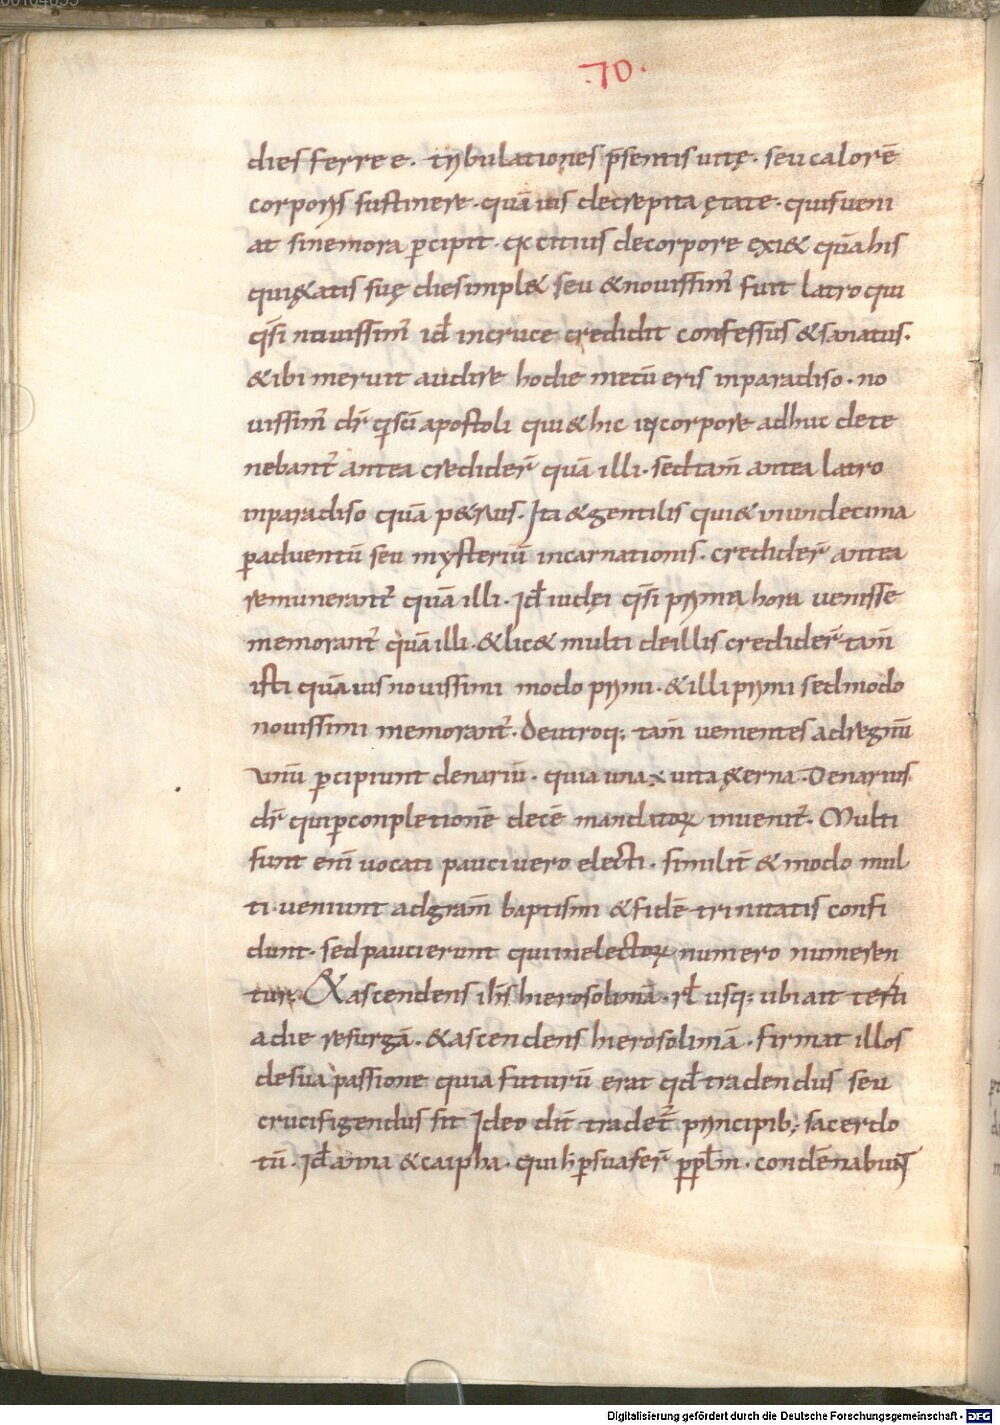 .70.
dies ferre e. tribulationes p̄sentis uitę. seu calorē
corporis sustinere. quāuis decrepita ętate. quis ueni
at sine mora p̱cipit. & citius de corpore exi& quā his
qui ętatis suę dies impl& seu & nouissim̄ fuit latro qui
q̄si nouissim̄ id̄ in cruce credidit confessus & sanatus.
& ibi meruit audire hodie mecū eris in paradiso. no
uissim̄ dr̄ q̄ sc̄i apostoli qui & hic in corpore adhuc dete
nebant̄ antea credider̄ quā illi. sed tam̄ antea latro
in paradiso quā p&rus. Ita & gentilis qui & in undecima
p̱ aduentū seu mysteriū incarnationis. credider̄ antea
remunerant̄ quā illi. Id̄ iudęi q̄si prima hora uenisse
memorant̄ quā illi. & lic& multi de illis credider̄ tam̄
isti quāuis nouissimi modo primi. & illi primi sed modo
nouissimi memorant̄. De utroq; tam̄ uenientes ad regnū
unū p̱cipiunt denariū. quia una ÷ uita ęterna. Denarius
dr̄ qui p̱ conpletionē decē mandatoꝝ inuenit̄. Multi
sunt eni̅ uocati pauci uero electi. similit̄ & modo mul
ti ueniunt ad gram̄ baptismi & fidē trinitatis confi
dunt. sed pauci erunt qui in electoꝝ numero numeren
tur. & ascendens ih̄s hierosolimā. rl̄ usq; ubi ait testi
a die resurgā. & ascendens hierosolimā. firmat illos
de sua passione quia futurū erat qd̄ tradendus seu
crucifigendus sit Ideo dīt tradet̄ principib; sacerdo
tū. Id̄ anna & caipha. qui h̄ p̱suaser̄ pp̄lm̄. condēnabunt
Digitalisierung gefördert durch die Deutsche Forschungsgemeinschaft - DFG